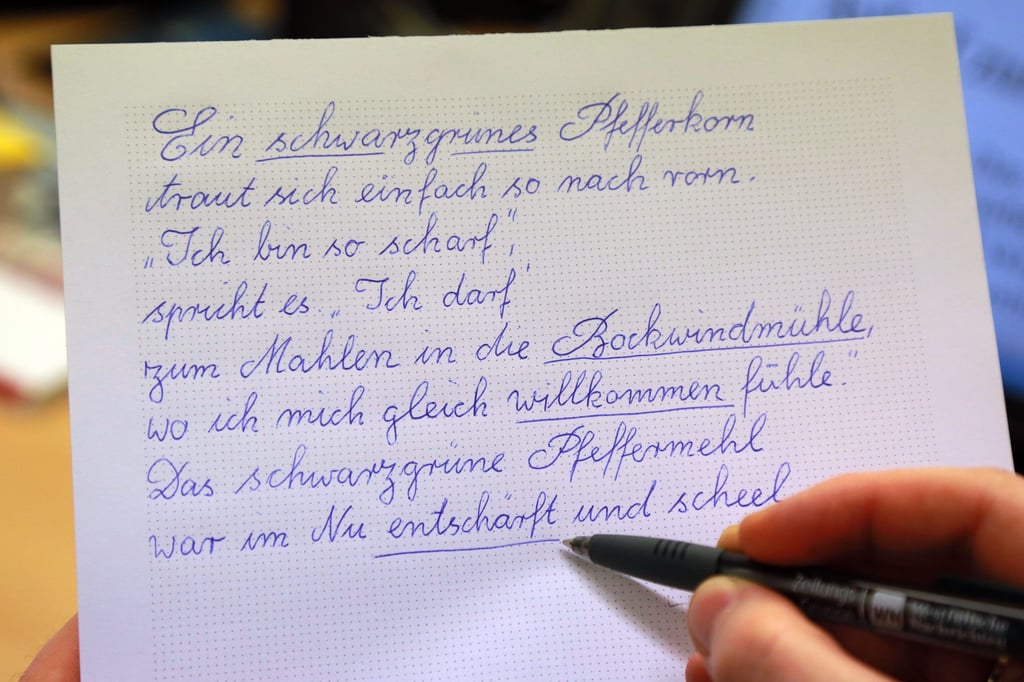 Ein schwarzgrünes Pfefferkorn
traut sich einfach so nach vorn.
„Ich bin so scharf“,
spricht es „Ich darf
zum Mahlen in die Bockwindmühle,
wo ich mich gleich willkommen fühle.“
Das schwarzgrüne Pfeffermehl
war im Nu entschärft und scheel
Zeitungs